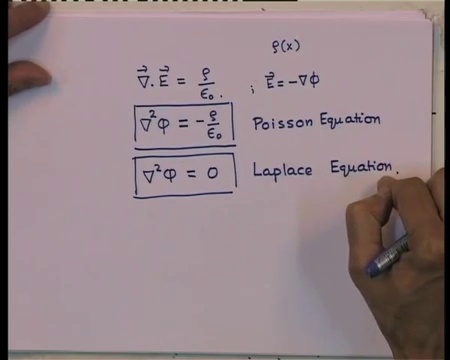 ρ(x)
∇⃗.E⃗ = ρ/ϵ₀. ; E⃗ = −∇Φ
∇²Φ = −ρ/ϵ₀ Poisson Equation
∇²Φ = 0 Laplace Equation.